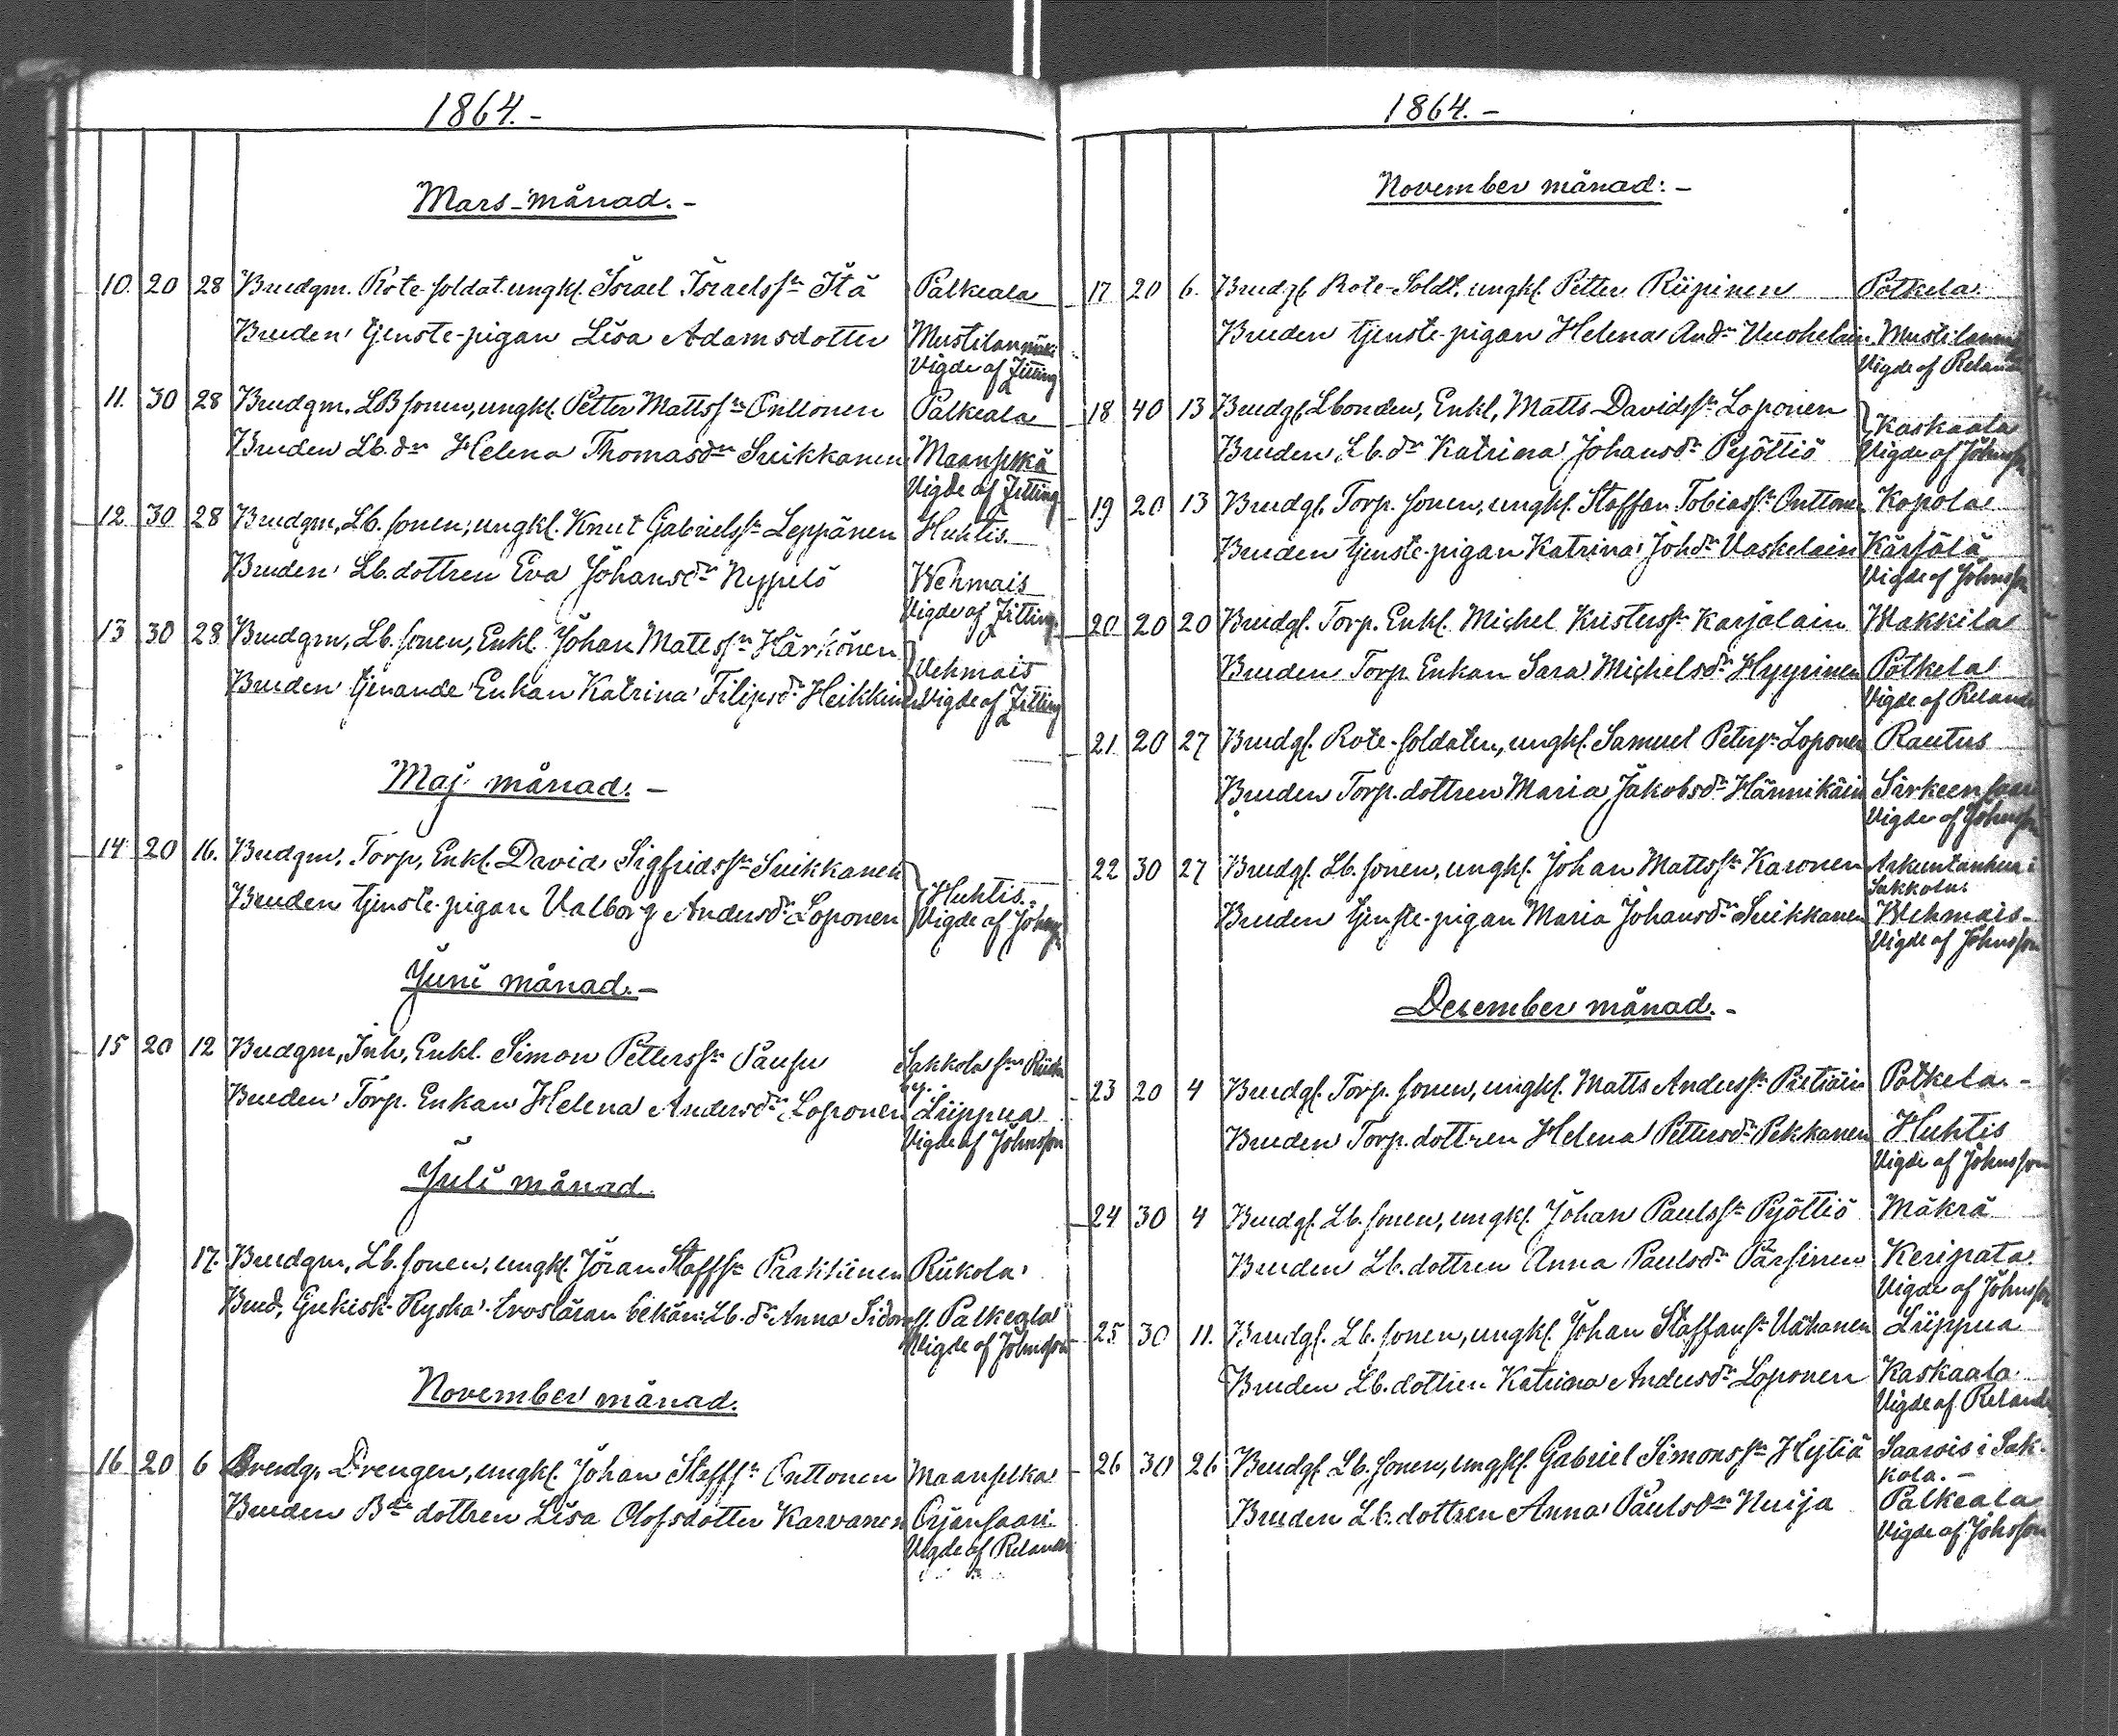 1864.-
Mars-månad.-
10. 20 28 Brudgm. Rote soldat ungkl. Israel Israelss:n Itä Palkeala
Bruden tjenste-pigan Lisa Adamsdotter Mustilanmäki
Vigde af Zitting
11. 30 28 Brudgm. LB sonen, ungkl. Petter Mattss:n Onttonen Palkeala
Bruden Lb. d:r Helena Thomasd:r Suikkanen Maanselkä
Vigde af Zitting
12 30 28 Brudgm, Lb. sonen, ungkl. Knut Gabrielss:n Leppänen Huhtis.
Bruden Lb. dottren Eva Johansd:r Nyppelö Wehmais
Vigde af Zitting.
13 30 28 Brudgm, Lb. sonen, Enkl. Johan Mattess:n Härkönen
Vehmais
Bruden tjenande Enkan Katrina Filipsd:r Heikkinen Vigde af Zitting
Maj månad.-
14 20 16. Brudgm, Torp, Enkl. David Sigfridss:n Suikkanen
Huhtis.
Bruden tjenste-pigan Valborg Andersd:r Loponen Vigde af
Juni månad.-
15 20 12 Brudgm, Inh, Enkl. Simon Petterss:n Pausu Sakkola s:n
Bruden Torp. Enkan Helena Andersd:r Loponen Liippua
Vigde af Johnsson
Juli månad
17. Brudgm, Lb. sonen, ungkl. Jöran Staffs:n Paakkinen Riikola
Brud, Grekisk-Ryska trosläran bekän: Lb. d:r Anna Palkeala
Vigde af Johnsson
November månad.
16 20 6 Brudg. Drengen, ungkl. Johan Staffs:n Onttonen Maanselka
Bruden B:de dottren Lisa Olofsdotter Karvanen Orjansaari
Vigde af Relander
1864.-
November månad:-
17 20 6. Brudgl. Rote-Soldt, ungkl. Petter Riipinen Potkela
Bruden tjenste-pigan Helena And:r Vuohelain
Vigde af Relander
18 40 13 Brudgl. Lbonden, Enkl, Matts Davidss:n Loponen
Kaskaala
Bruden Lb. d:r Katrina Johansd:r Pyöttiö Vigde af Johnsson
19 20 13 Brudgl. Torp. sonen, ungkl. Staffan Tobiass:n Onttonen Kopola
Bruden tjenste-pigan Katrina Johd:r Vaskelain Kärsälä
Vigde af Johnsson
20 20 20 Brudgl. Torp. Enkl. Michel Kristerss:n Karjalain Wakkila
Bruden Torp Enkan Sara Michelsd:r Hyyrinen Potkela
Vigde af Relander
21 20 27 Brudgl. Rote-soldaten, ungkl. Samuel Peters:n Loponen Rautus
Bruden Torp. dottren Maria Jakobsd:r Hännikäin Sirkeensaari
Vigde af Johnsson
22 30 27 Brudgl. Lb. sonen, ungkl. Johan Mattss:n Karonen i
Sakkola
Bruden tjenste-pigan Maria Johansd:r Suikkanen Wehmais-
Vigde af Johnsson
December månad.-
23 20 4 Brudgl. Torp. sonen, ungkl. Matts Anderss:n Pietiäin Potkela.-
Bruden Torp. dottren Helena Pettersd:r Pekkanen Huhtis
Vigde af Johnsson
24 30 4 Brudgl. Lb. sonen, ungkl. Johan Paulss:n Pyöttiö Mäkrä
Bruden Lb. dottren Anna Paulsd:r Pärsinen Keripata
Vigde af Johnsson
25 30 11. Brudgl. Lb. sonen, ungkl. Johan Staffans:n Vähanen Liippua
Bruden Lb. dottren Katrina Andersd:r Loponen Kaskaala
Vigde af Reland
26 30 26 Brudgl. Lb. sonen, ungkl. Gabriel Simonss:n Hytiä Saarois i Sak-
kola.-
Bruden Lb. dottren Anna Paulsd:r Nuija Palkeala
Vigde af Johsson